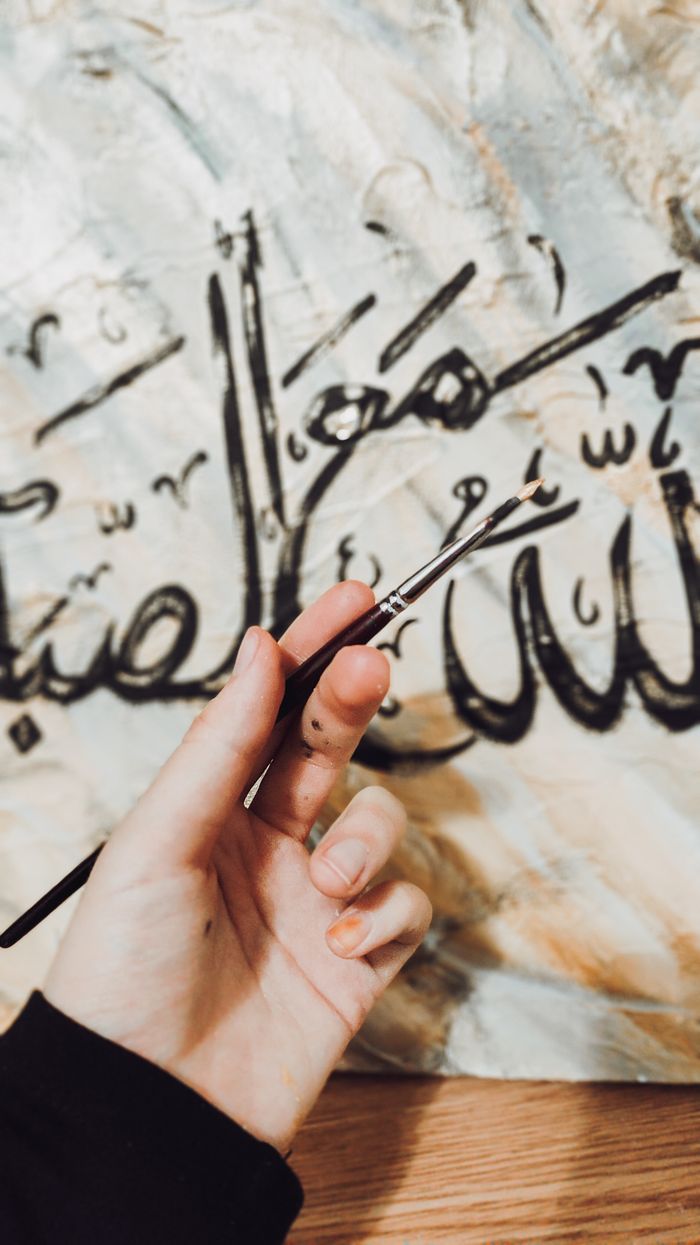 الله مع الصب